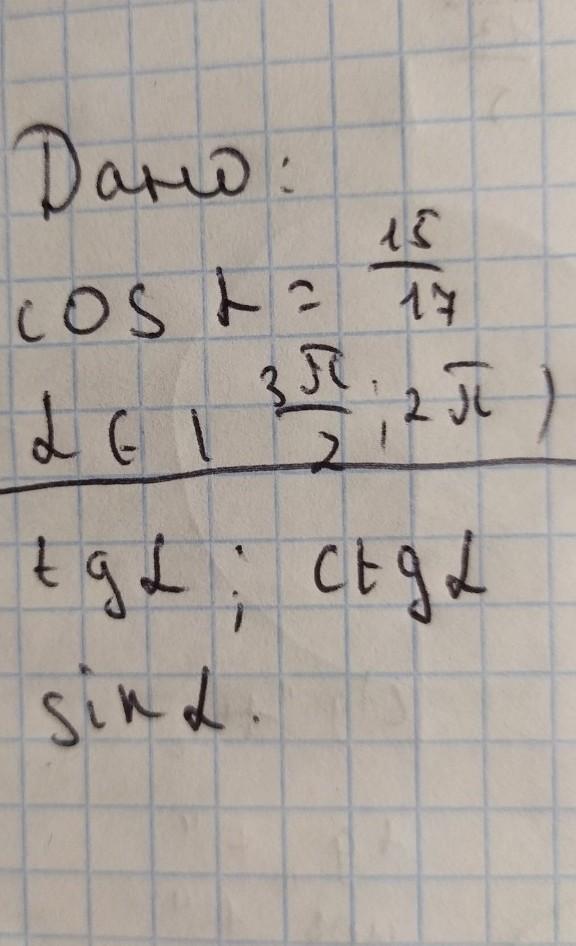 Дано:
cos α = 15/17
α ∈ ( 3π/2 ; 2π )
tg α ; ctg α
sin α.